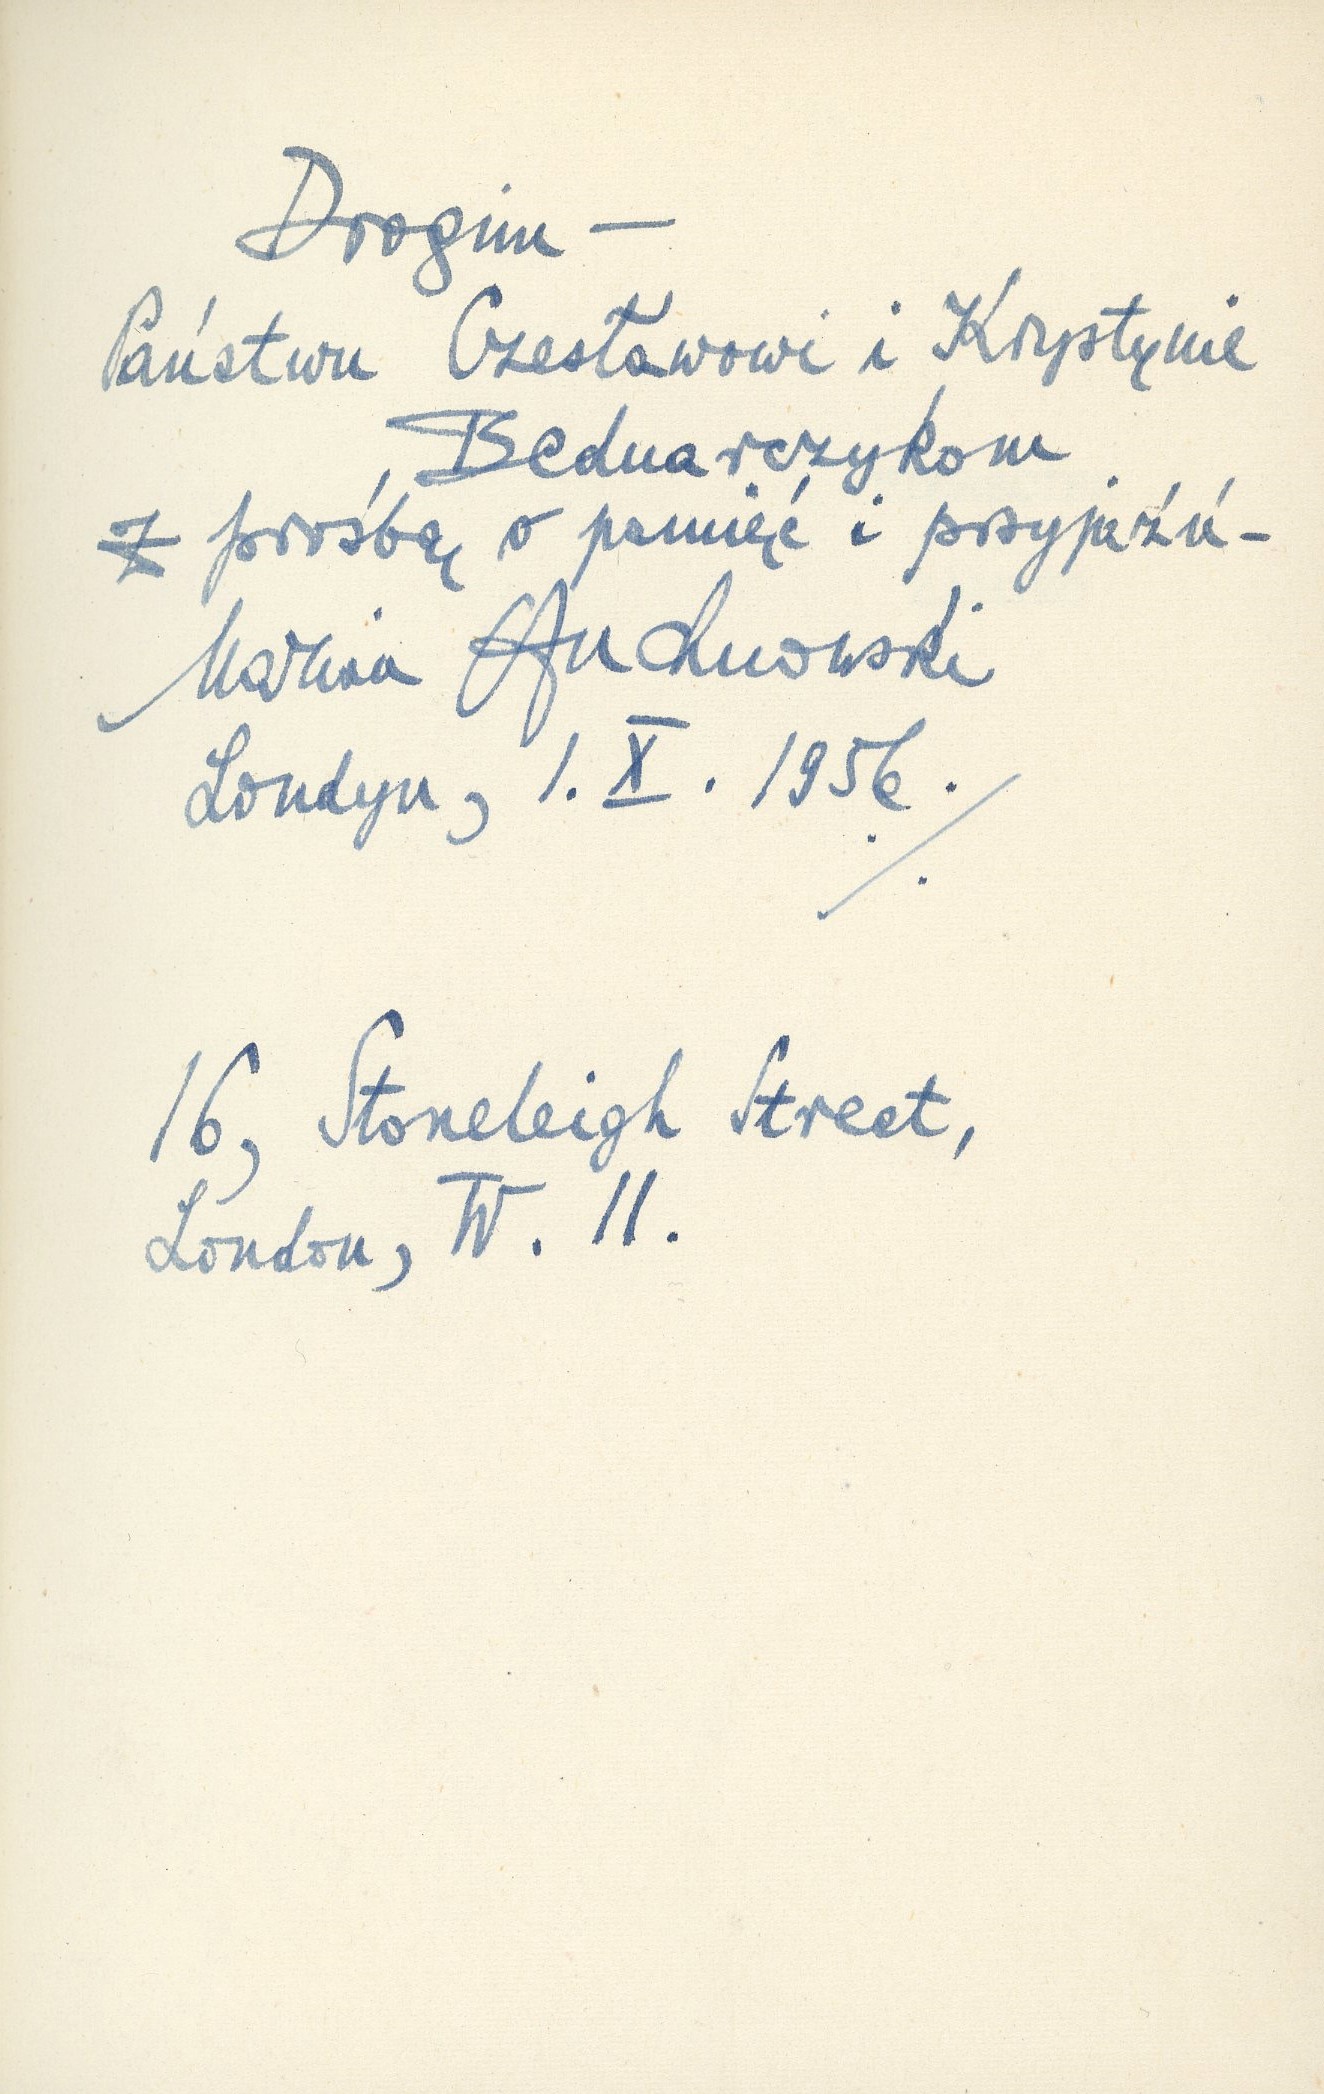 Drogim —
Państwu Czesławowi i Krystynie
Bednarczykom
z prośbą o pamięć i przyjaźń –
Marian Czuchnowski
Londyn, 1. X. 1956.
16, Stoneleigh Street,
London, W. 11.